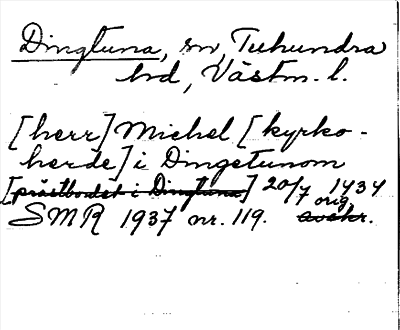 Dingtuna, sn, Tuhundra
hd, Västm. l.
[herr] Michel [kyrko-
herde] i Dingetunom
[prästbordet i Dingtuna] 20/7 1434
orig.
SMR 1937 nr. 119. avskr.